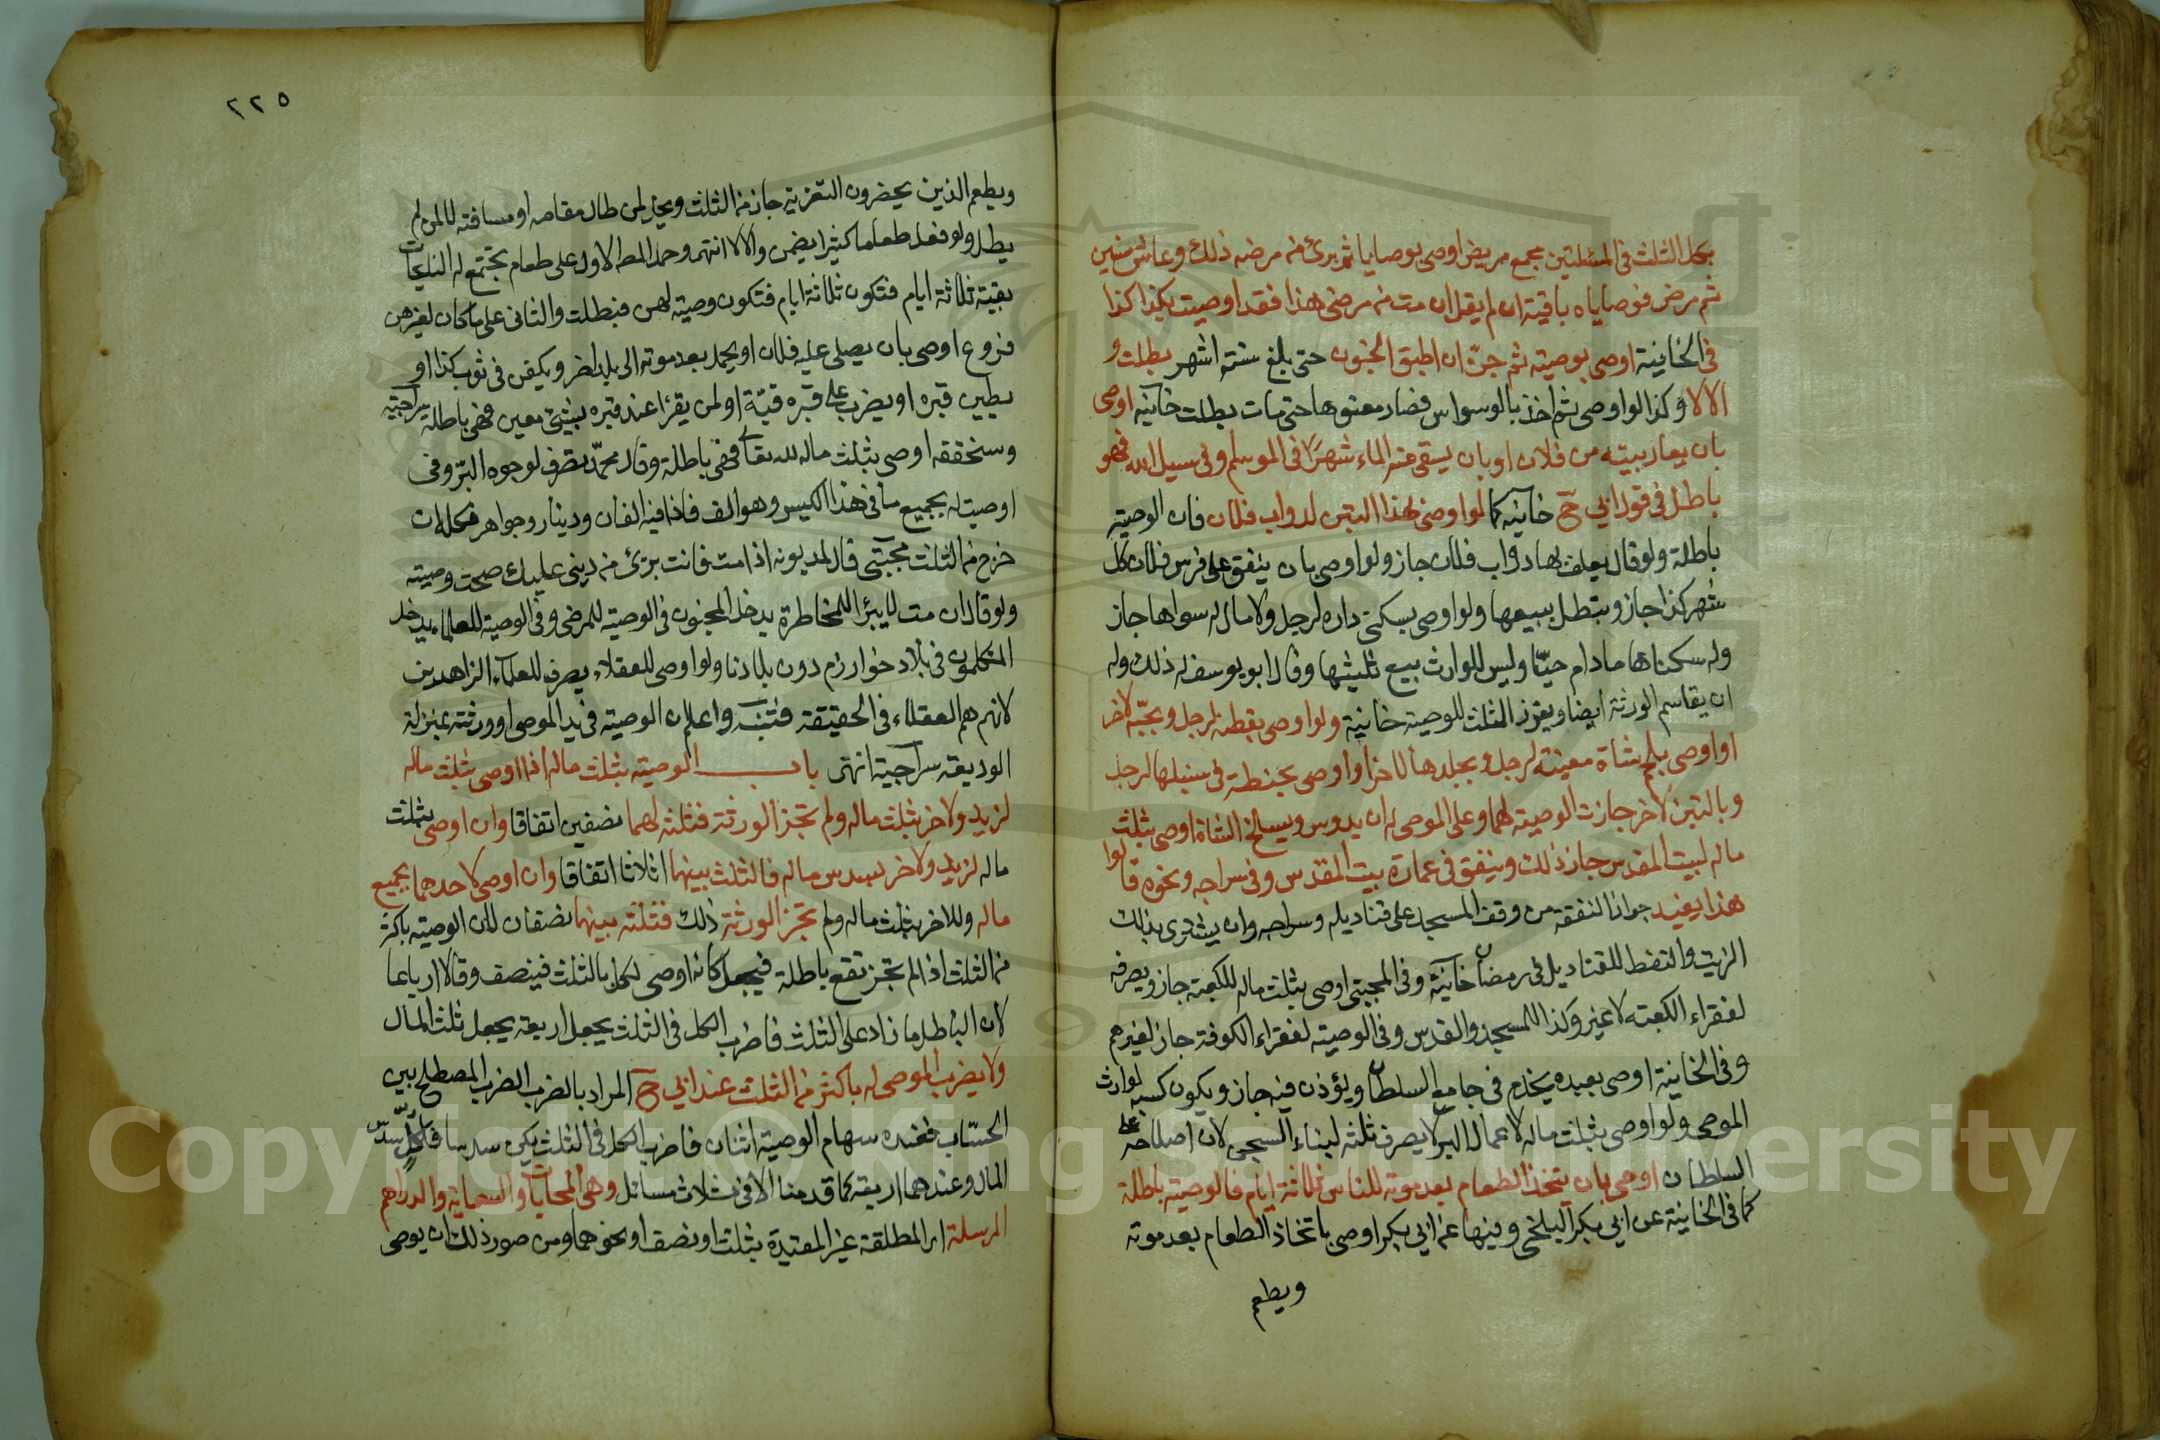 بكل الثلث فى المسئلتين مجمع مريض اوصى بوصايا ثم برئ من مرضه ذلك وعاش سنين
ثم مرض فوصاياه باقية ان لم يقل ان مت من مرضى هذا فقد اوصيت بكذا كذا
فى الخانية اوصى بوصية ثم جنّ ان اطبق الجنون حتى بلغ ستة اشهر بطلت و
الا لا وكذا لو اوصى ثم اخذ بالوسواس فصار معتوها حتى مات بطلت خانيه اوصى
بان يعار بيته من فلان او بان يسقى عنه الماء شهرا فى الموسم او فى سبيل الله فهو
باطل فى قول ابي حنيفة خانيه كما لو اوصى بهذا التبن لدواب فلان فان الوصية
باطلة ولو قال يعلف بها دواب فلان جاز ولو اوصى بان ينفق على فرس فلان كل
شهر كذا جاز وتبطل ببيعها ولو اوصى بسكنى داره لرجل ولا مال له سواها جاز
وله سكناها مادام حيّا وليس للوارث بيع ثلثيها وقال ابو يوسف له ذلك وله
ان يقاسم الورثة ايضا ويفرز الثلث للوصية خانية ولو اوصى بقطنه لرجل وبحبّه لاخر
او اوصى بلحم شاة معينة لرجل وبجلدها لاخر او اوصى بحنطة فى سنبلها لرجل
وبالتبن لاخر جازت الوصية لهما وعلى الموصى له ان يدوس ويسلخ الشاة اوصى بثلث
ماله لبيت المقدس جاز ذلك وينفق فى عمارة بيت المقدس وفى سراجه ونحوه قالوا
هذا يفيد جواز النفقة من وقف المسجد على قناديله وسراجه وان يشترى بذلك
الزيت والنفط للقناديل فى رمضان خانيّه وفى المجتبى اوصى بثلث ماله للكعبة جاز ويصرف
لفقراء الكعبة لا غير وكذا للمسجد والقدس وفى الوصية لفقراء الكوفة جاز لغيرهم
وفى الخانية اوصى بعبده يخدم فى جامع السلطان ويؤذن فيه جاز ويكون كسبه لوارث
الموصى ولو اوصى بثلث ماله لاعمال البر لا يصرف ثلثه لبناء السجن لان اصلاحه على
السلطان اوصى بان يتخذ الطعام بعد موته للناس ثلاثة ايام فالوصية باطلة
كما فى الخانية عن ابى بكر البلخي وفيها عن ابى بكر اوصى باتخاذ الطعام بعد موته
ويطعم
٢٢٥
ويطعم الذين يحضرون التعزية جاز من الثلث ويحل لمن طال مقامه او مسافته لا لمن لم
يطل ولو فضل طعاما كثيرا يضمن والا لا انتهى وحمل المص الاول على طعام يجتمع له النائحات
بقية ثلاثة ايام فتكون ثلاثة ايام فتكون وصية لهن فبطلت والثانى على ما كان لغيرهن
فروع اوصى بان يصلى عليه فلان او يحمل بعد موته الى بلد اخر ويكفن فى ثوب كذا او
يطين قبره او يضرب على قبره قبّة او لمن يقرا عند قبره بشئ معين فهى باطلة سراجيه
وسنحققه اوصى بثلث ماله لله تعالى فهى باطلة وقال محمّد تصرف لوجوه البرّ وفى
اوصيت له بجميع ما فى هذا الكيس وهو الف فاذا فيه الفان ودينار وجواهر فكله له ان
خرج من الثلث مجتبى قال لمديونه اذا مت فانت برئ من دينى عليك صحت وصيته
ولو قال ان مت لا يبرأ للمخاطرة يدخل المجنون فى الوصية للمرضى وفى الوصية للعلماء يدخل
المتكلمون فى بلاد خوارزم دون بلادنا ولو اوصى للعقلاء يصرف للعلماء الزاهدين
لانهم هم العقلاء فى الحقيقة فتنبه واعلم ان الوصية فى يد الموصى او ورثته بمنزلة
الوديعة سراجية انتهى باب الوصية بثلث ماله اذا اوصى بثلث ماله
لزيد ولاخر بثلث ماله ولم تجز الورثة فثلثه لهما نصفين اتفاقا وان اوصى بثلث
ماله لزيد ولاخر بسدس ماله فالثلث بينهما اثلاثا اتفاقا وان اوصى لاحدهما بجميع
ماله وللاخر بثلث ماله ولم تجز الورثة ذلك فثلثه بينهما نصفان لان الوصية باكثر
من الثلث اذا لم تجز تقع باطلة فيجعل كانه اوصى لكل بالثلث فينصف وقالا ارباعا
لان الباطل ما زاد على الثلث فاضرب الكل فى الثلث يجعل اربعة يجعل ثلث المال
ولا يضرب الموصى له باكثر من الثلث عند ابى حنيفة المراد بالضرب الضرب المصطلح بين
الحسّاب فعنده سهام الوصية اثنان فاضرب الكل فى الثلث يكن سدسا فلكل سدس
المال وعندهما اربعة كما قدمنا الا فى ثلاث مسائل وهى المحابات والسعاية والدراهم
المرسلة اى المطلقة غير المقيدة بثلث او نصف او نحوهما ومن صور ذلك ان يوصى